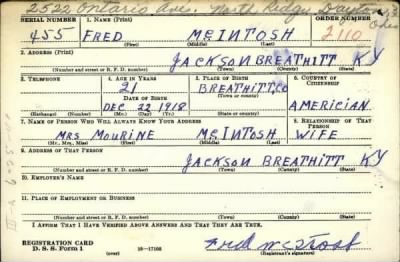 2522 Ontario Ave. North Ridge, Dayton Ohio
SERIAL NUMBER 1. NAME (Print) ORDER NUMBER
455 FRED McINTOSH 2110
(First) (Middle) (Last)
2. ADDRESS (Print)
JACKSON BREATHITT KY
(Number and street or R. F. D. number) (Town) (County) (State)
3. TELEPHONE 4. AGE IN YEARS 5. PLACE OF BIRTH 6. COUNTRY OF CITIZENSHIP
21 BREATHITT, CO
DATE OF BIRTH (Town or county)
DEC 22 1918 AMERICIAN
(Exchange) (Number) (Mo.) (Day) (Yr.) (State or country)
7. NAME OF PERSON WHO WILL ALWAYS KNOW YOUR ADDRESS 8. RELATIONSHIP OF THAT PERSON
MRS MOURINE McINTOSH WIFE
(Mr., Mrs., Miss) (First) (Middle) (Last)
9. ADDRESS OF THAT PERSON
JACKSON BREATHITT KY
(Number and street or R. F. D. number) (Town) (County) (State)
10. EMPLOYER'S NAME
11. PLACE OF EMPLOYMENT OR BUSINESS
(Number and street or R. F. D. number) (Town) (County) (State)
I AFFIRM THAT I HAVE VERIFIED ABOVE ANSWERS AND THAT THEY ARE TRUE.
REGISTRATION CARD
D. S. S. Form 1 16-17105 (Registrant's signature)